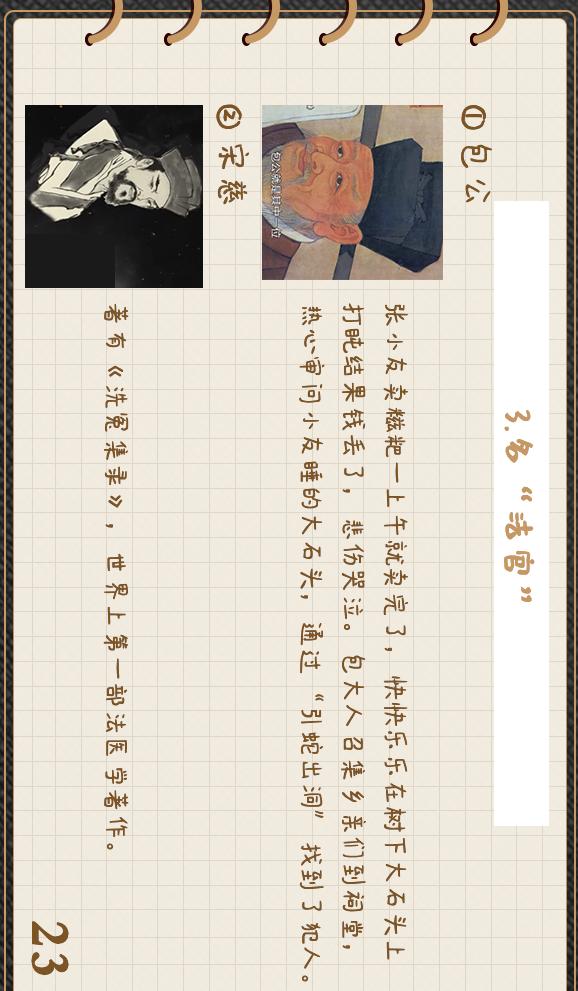 3.名“法官”
①包公
包公就是其中一位
张小友卖糍粑一上午就卖完了，快快乐乐在树下大石头上
打盹结果钱丢了，悲伤哭泣。包大人召集乡亲们到祠堂，
热心审问小友睡的大石头，通过“引蛇出洞”找到了犯人。
②宋慈
著有《洗冤集录》，世界上第一部法医学著作。
23